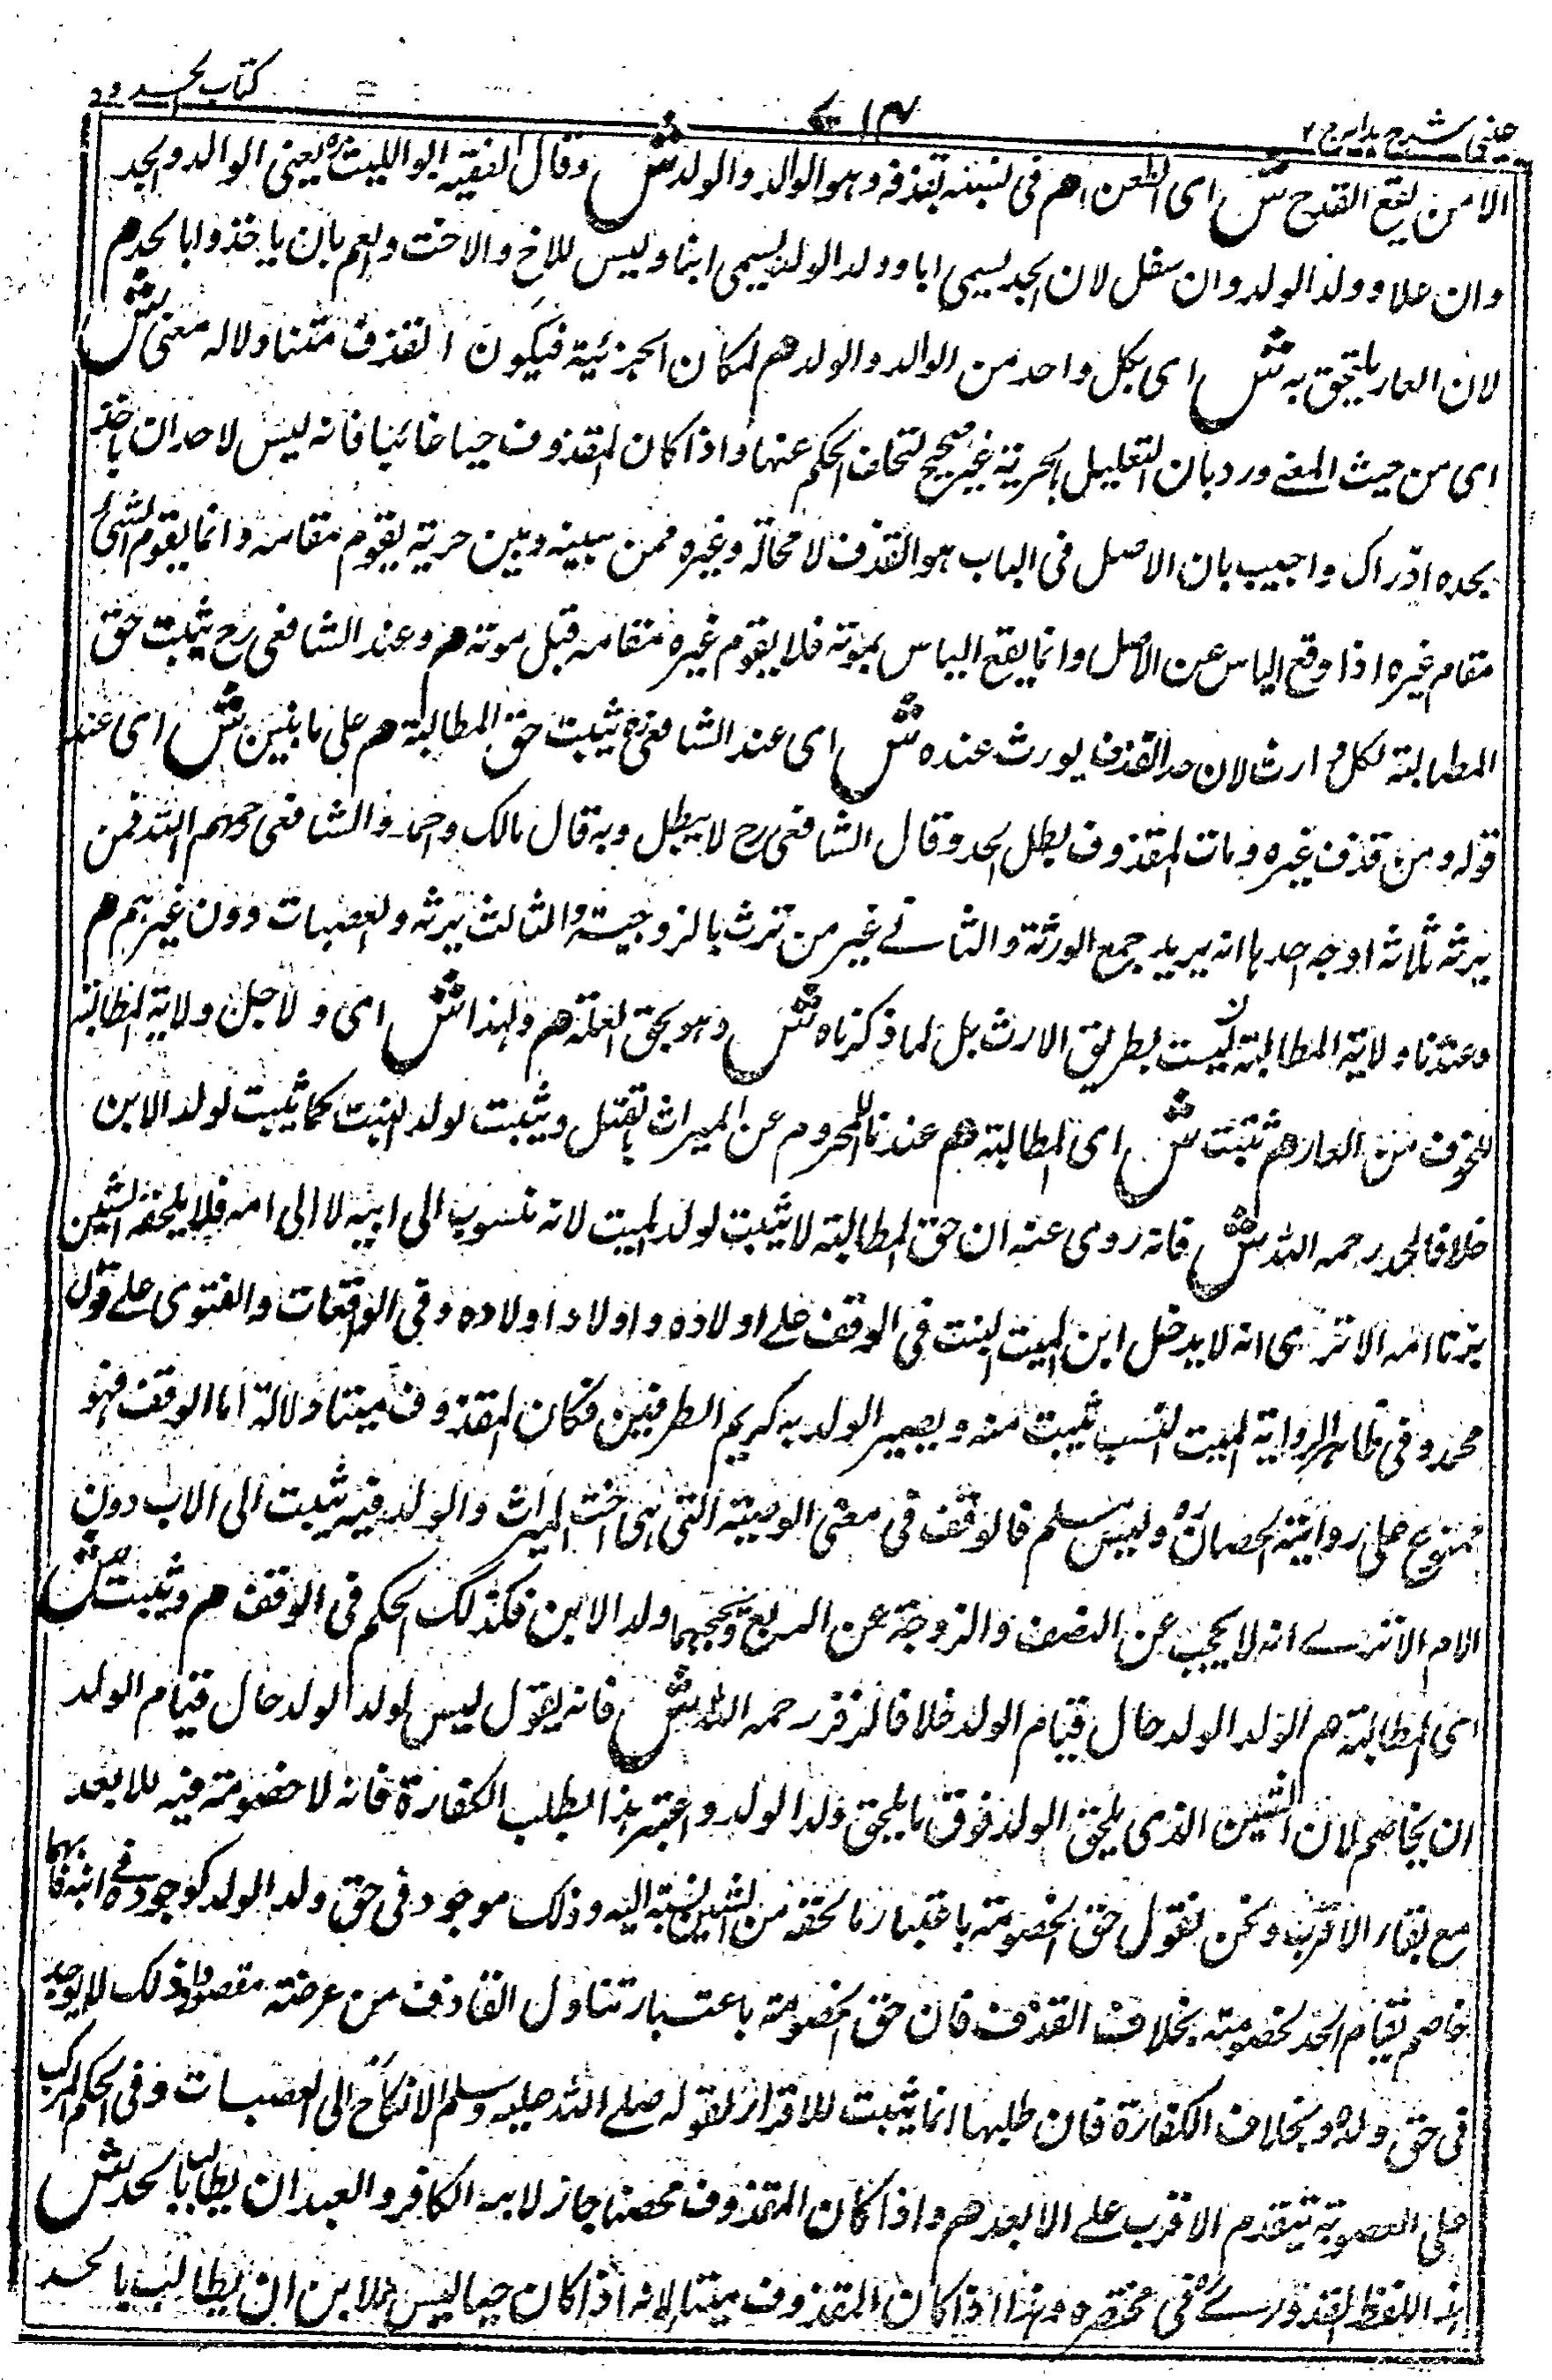 عینی شرح ہدایہ ج ۲
کتاب الحدود
الا من يقع القدح ش اى الطعن هم فى نسبه بقذفه وهو الوالد والولد ش وقال الفقيه ابو الليث يعنى الوالد والجد
وان علا وولد الولد وان سفل لان الجد يسمى ابا وولد الولد يسمى ابنا وليس للاخ والاخت والعم بان ياخذوا بالحد هم
لان العار يلتحق به ش اى بكل واحد من الوالد والولد هم لمكان الجزئية فيكون القذف متناولا له معنى ش
اى من حيث المعنى ورد بان التعليل بالجزئية غير صحيح لتخلف الحكم عنها واذا كان المقذوف حيا غائبا فانه ليس لاحد ان ياخذ
بحده اذ ذاك واجيب بان الاصل فى الباب هو القذف لا محالة وغيره ممن بينه وبين جزئية يقوم مقامه وانما يقوم الشئ
مقام غيره اذا وقع الياس عن الاصل وانما يقع الياس بموته فلا يقوم غيره مقامه قبل موته هم وعند الشافعى رح يثبت حق
المطالبة لكل وارث لان حد القذف يورث عنده ش اى عند الشافعى رح يثبت حق المطالبة هم على ما نبين ش اى عند
قوله ومن قذف غيره ومات المقذوف بطل الحد وقال الشافعى رح لا يبطل وبه قال مالك واحمد والشافعى رحمهم الله فمن
يرثه ثلاثة اوجه احدها انه يريد جمع الورثة والثانے غير من ترث بالزوجية والثالث يرثه والعصبات دون غيرهم هم
وعندنا ولاية المطالبة ليست بطريق الارث بل لما ذكرناه ش وهو لحوق العار هم ولهذا ش اى ولاجل ولاية المطالبة
للخوف من العار هم تثبت ش اى المطالبة هم عندنا للمحروم عن الميراث بالقتل ويثبت لولد البنت كما يثبت لولد الابن
خلافا لمحمد رحمه الله ش فانه روى عنه ان حق المطالبة لا يثبت لولد البنت لانه منسوب الى ابيه لا الى امه فلا يلحقه الشين
بزنا امه الا ترى انه لا يدخل ابن البنت فى الوقف على اولاده واولاد اولاده وفى الواقعات والفتوى على قول
محمد وفى ظاهر الرواية النسب يثبت منه ويصير الولد به كريم الطرفين فكان المقذوف متناولا له اما الوقف فهو
ممنوع على رواية الخصاف وليس سلم فالوقف فى معنى الوصية التى هى اخت الميراث والولد فيه يثبت الى الاب دون
الام الا ترے انه لا يحجب عن النصف والزوجة عن الربع ويحجبهما ولد الابن فكذلك الحكم فى الوقف هم ويثبت ش
اى المطالبة هم لولد الولد حال قيام الولد خلافا لزفر رحمه الله ش فانه يقول ليس لولد الولد حال قيام الولد
ان يخاصم لان الشين الذى يلحق الولد فوق ما يلحق ولد الولد واعتبر هذا بطلب الكفارة فانه لا خصومة فيه للابعد
مع بقاء الاقرب ونحن نقول حق الخصومة باعتبار ما لحقه من الشين بنسبته اليه وذلك موجود فى حق ولد الولد كوجوده فے ابنه فايهما
خاصم يقام الحد لخصومته بخلاف القذف فان حق الخصومة باعتبار تناول القاذف من عرضه مقصودا وذلك لا يوجد
فى حق ولده وبخلاف الكفارة فان طلبها انما يثبت للاقرار لقوله صلے الله عليه وسلم الانكاح الى العصبات وفى الحكم المركب
على العصوبة يتقدم الاقرب على الابعد هم واذا كان المقذوف محصنا جاز لابنه الكافر والعبد ان يطالب بالحد ش
هذا اللفظ القدورے فى مختصره وهذا اذا كان المقذوف ميتا لانه اذا كان حيا ليس للابن ان يطالب بالحد